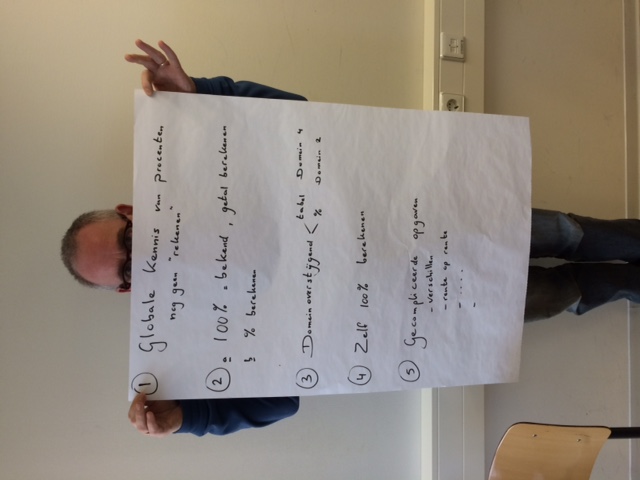 ① Globale Kennis van procenten
nog geen "rekenen"
② a 100% = bekend, getal berekenen
b % berekenen
③ Domeinoverstijgend < tabel Domein 4
% Domein 2
④ Zelf 100% berekenen
⑤ Gecompliceerde opgaven
- verschillen
- rente op rente
- .....
-